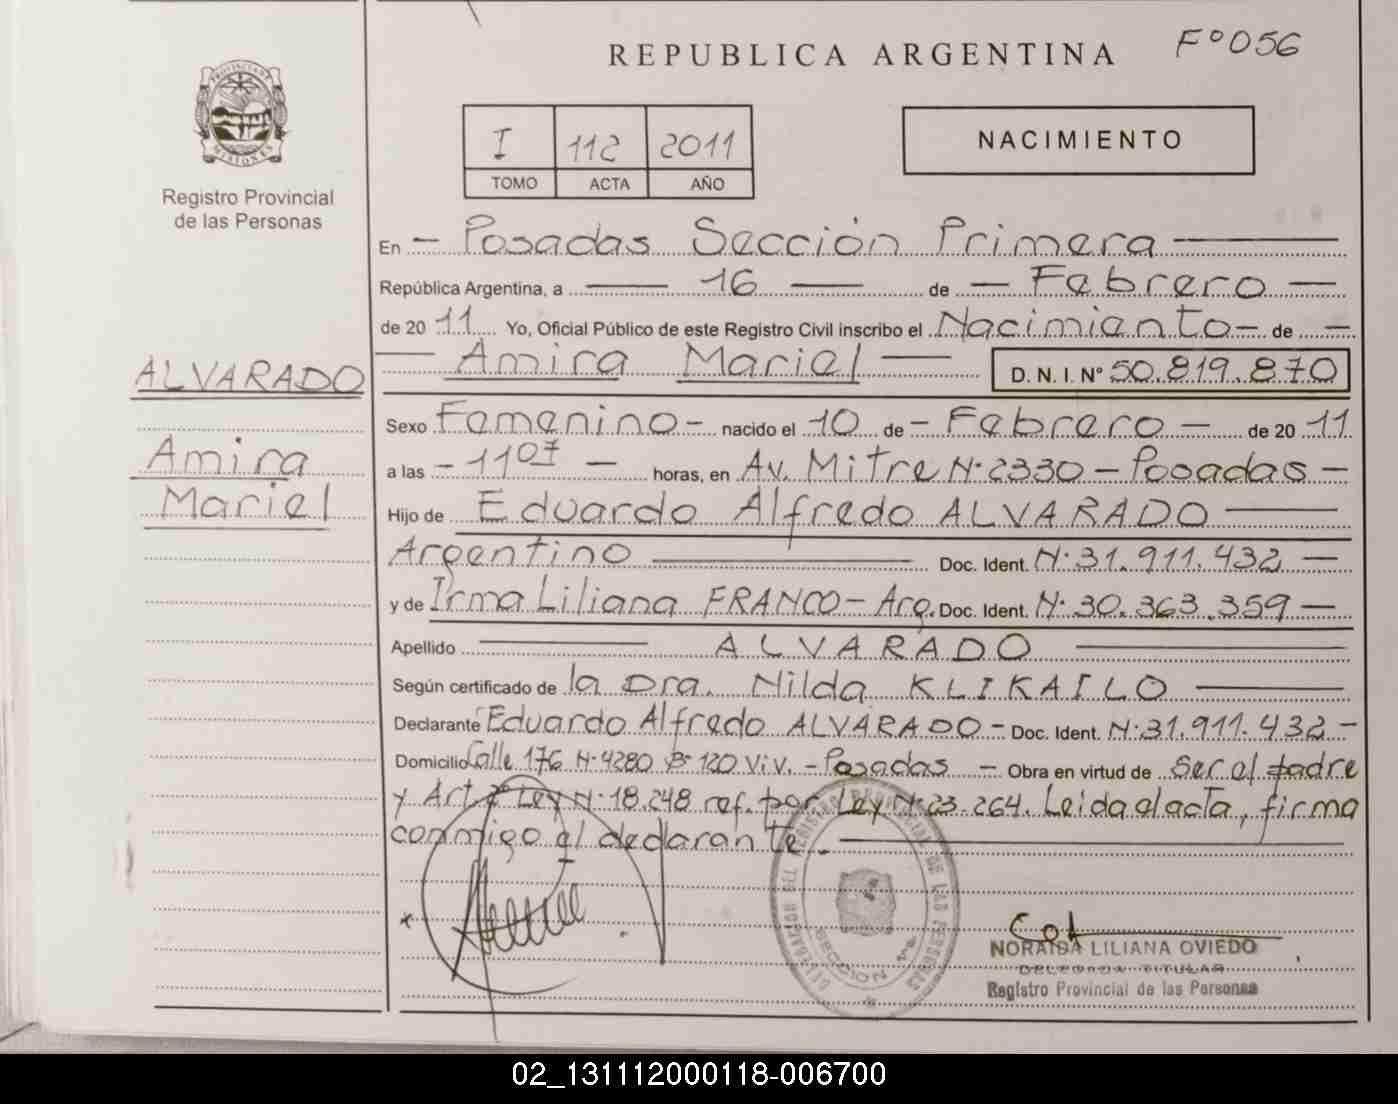 REPUBLICA ARGENTINA
Fº 056
PROVINCIA DE
MISIONES
Registro Provincial
de las Personas
I 112 2011
TOMO ACTA AÑO
NACIMIENTO
En - Posadas Sección Primera
República Argentina, a 16 de - Febrero -
de 20 11 Yo, Oficial Público de este Registro Civil inscribo el Nacimiento - de -
Amira Mariel D. N. I. Nº 50.819.870
ALVARADO
Amira
Mariel
Sexo Femenino - nacido el 10 de - Febrero - de 20 11
a las - 1107 - horas, en Av. Mitre Nº 2330 - Posadas -
Hijo de Eduardo Alfredo ALVARADO
Argentino Doc. Ident. Nº 31.911.432 -
y de Irma Liliana FRANCO - Arg. Doc. Ident. Nº 30.363.359 -
Apellido ALVARADO
Según certificado de la Dra. Nilda KLIKAILO
Declarante Eduardo Alfredo ALVARADO - Doc. Ident. Nº 31.911.432 -
Domicilio Calle 176 Nº 4280 Bº 120 Viv. - Posadas - Obra en virtud de ser el padre
y Art. 2º Ley Nº 18.248 ref. por Ley Nº 23.264. Leida el acta, firma
conmigo el declarante.
SECCION 1ª
NORAIDA LILIANA OVIEDO
DELEGADA TITULAR
Registro Provincial de las Personas
02_131112000118-006700